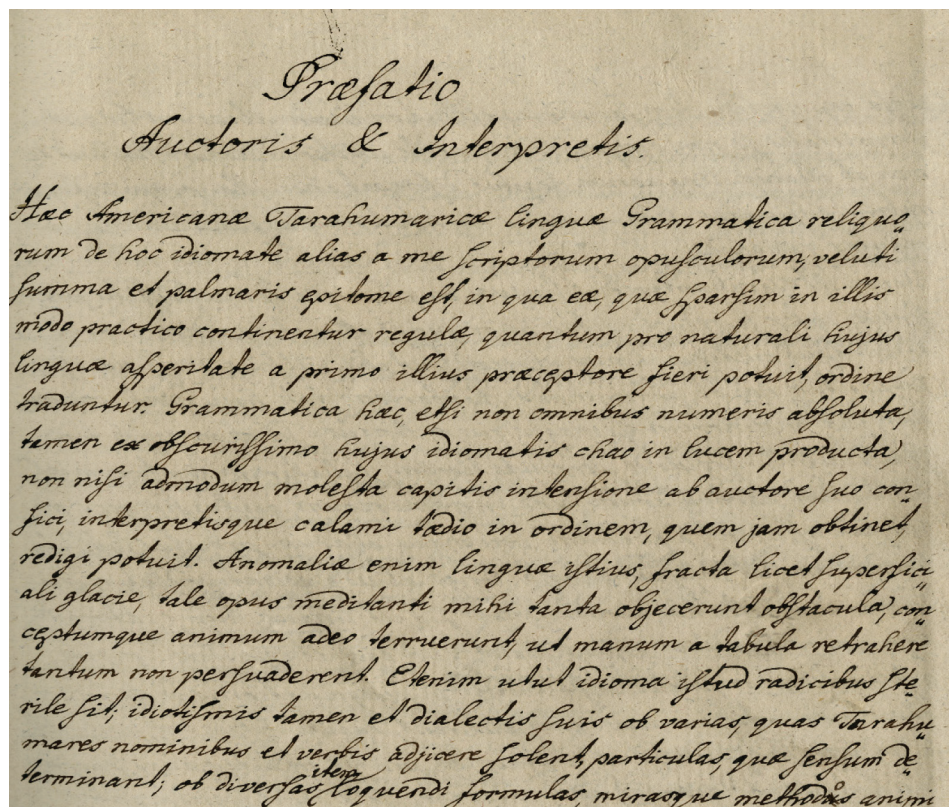 Præfatio
Auctoris & Interpretis.
Hæc Americanæ Tarahumaricæ linguæ Grammatica reliquo„
rum de hoc idiomate alias a me scriptorum opusculorum, veluti
summa et palmaris epitome est, in qua eæ, quæ sparsim in illis
modo practico continentur regulæ, quantum pro naturali hujus
linguæ asperitate a primo illius præceptore fieri potuit, ordine
traduntur. Grammatica hæc, etsi non omnibus numeris absoluta,
tamen ex obscurissimo hujus idiomatis chao in lucem producta,
non nisi admodum molesta capitis intensione ab auctore suo con„
fici, interpretisque calami tædio in ordinem, quem jam obtinet,
redigi potuit. Anomaliæ enim linguæ istius, fracta licet superfici„
ali glacie, tale opus meditanti mihi tanta objecerunt obstacula, con„
ceptumque animum adeo terruerunt, ut manum a tabula retrahere
tantum non persuaderent. Etenim utut idioma istud radicibus ste„
rile sit; idiotismis tamen et dialectis suis ob varias, quas Tarahu„
mares nominibus et verbis adjicere solent, particulas, quæ sensum de„
terminant; ob diversas item loquendi formulas, mirasque methodos animi